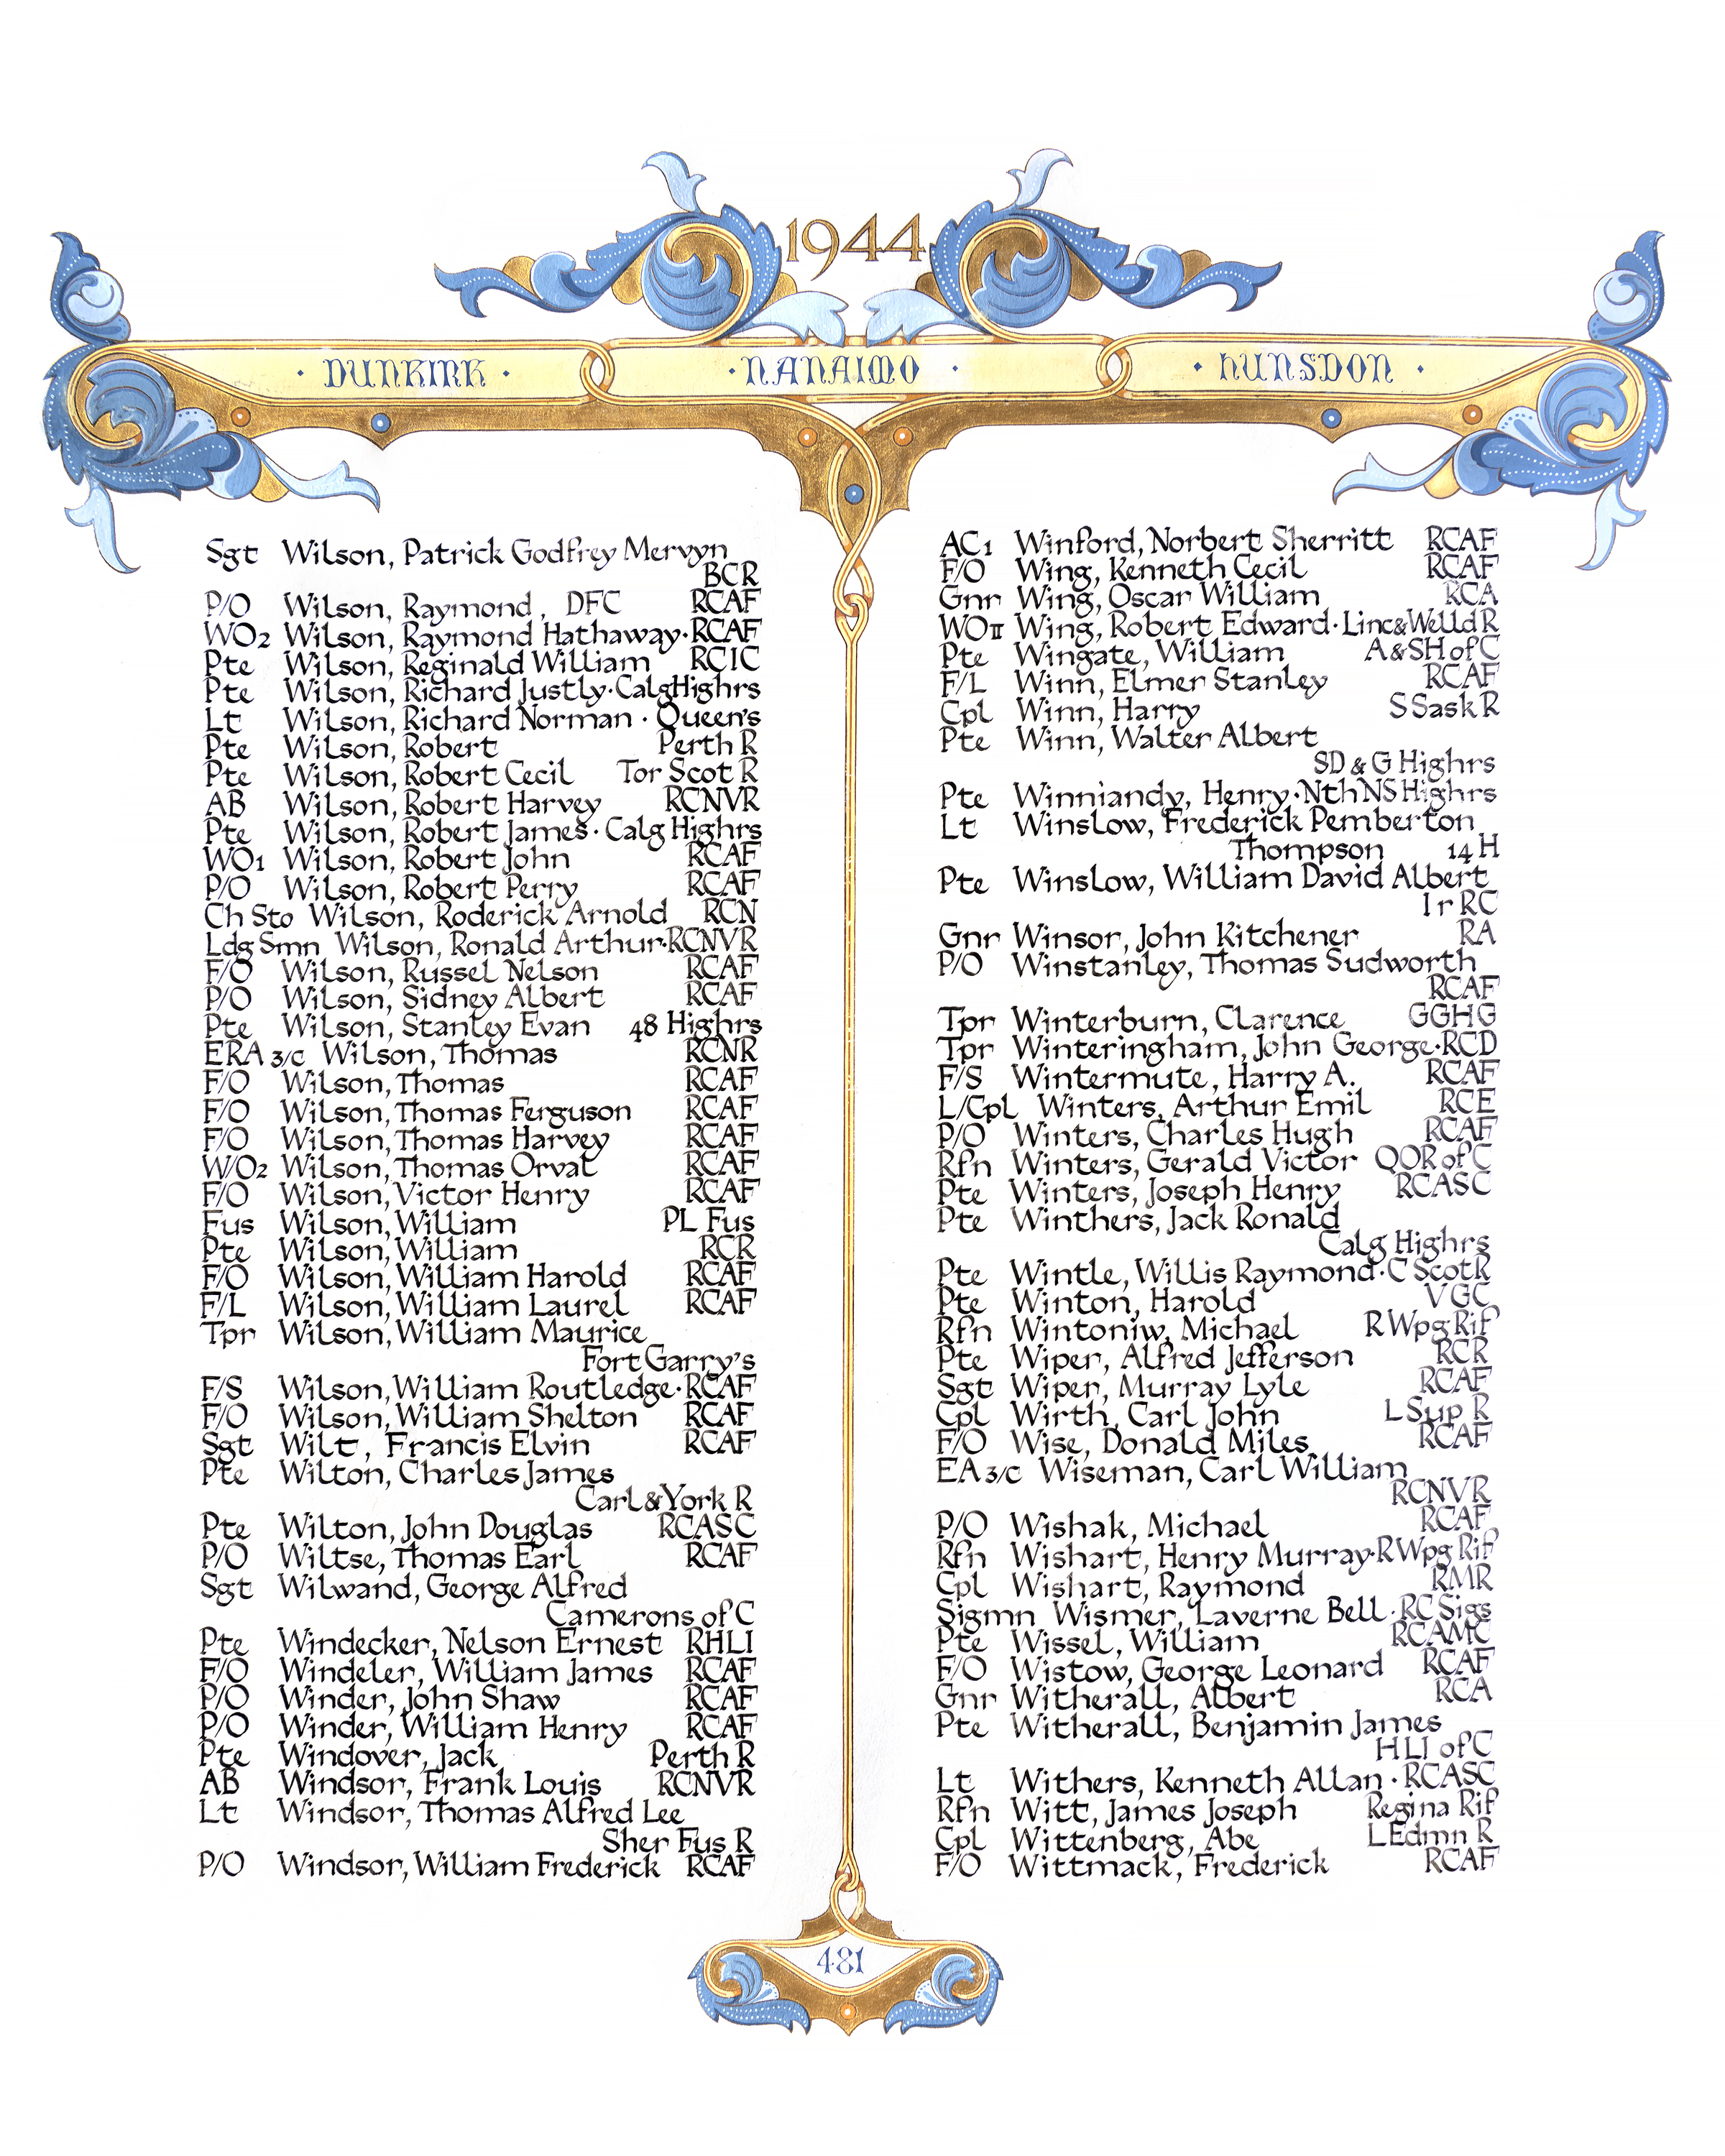 1944
· DUNKIRK · · NANAIMO · · HUNSDON ·
Sgt Wilson, Patrick Godfrey Mervyn
BCR
P/O Wilson, Raymond, DFC RCAF
WO2 Wilson, Raymond Hathaway·RCAF
Pte Wilson, Reginald William RCIC
Pte Wilson, Richard Justly·CalgHighrs
Lt Wilson, Richard Norman · Queen's
Pte Wilson, Robert Perth R
Pte Wilson, Robert Cecil Tor Scot R
AB Wilson, Robert Harvey RCNVR
Pte Wilson, Robert James· Calg Highrs
WO1 Wilson, Robert John RCAF
P/O Wilson, Robert Perry RCAF
Ch Sto Wilson, Roderick Arnold RCN
Ldg Smn Wilson, Ronald Arthur·RCNVR
F/O Wilson, Russel Nelson RCAF
P/O Wilson, Sidney Albert RCAF
Pte Wilson, Stanley Evan 48 Highrs
ERA 3/c Wilson, Thomas RCNR
F/O Wilson, Thomas RCAF
F/O Wilson, Thomas Ferguson RCAF
F/O Wilson, Thomas Harvey RCAF
WO2 Wilson, Thomas Orval RCAF
F/O Wilson, Victor Henry RCAF
Fus Wilson, William PL Fus
Pte Wilson, William RCR
F/O Wilson, William Harold RCAF
F/L Wilson, William Laurel RCAF
Tpr Wilson, William Maurice
Fort Garry's
F/S Wilson, William Routledge·RCAF
F/O Wilson, William Shelton RCAF
Sgt Wilt, Francis Elvin RCAF
Pte Wilton, Charles James
Carl&York R
Pte Wilton, John Douglas RCASC
P/O Wiltse, Thomas Earl RCAF
Sgt Wilwand, George Alfred
Camerons of C
Pte Windecker, Nelson Ernest RHLI
F/O Windeler, William James RCAF
P/O Winder, John Shaw RCAF
P/O Winder, William Henry RCAF
Pte Windover, Jack Perth R
AB Windsor, Frank Louis RCNVR
Lt Windsor, Thomas Alfred Lee
Sher Fus R
P/O Windsor, William Frederick RCAF
AC1 Winford, Norbert Sherritt RCAF
F/O Wing, Kenneth Cecil RCAF
Gnr Wing, Oscar William RCA
WOII Wing, Robert Edward·Linc&Welld R
Pte Wingate, William A&SH of C
F/L Winn, Elmer Stanley RCAF
Cpl Winn, Harry S Sask R
Pte Winn, Walter Albert
SD & G Highrs
Pte Winniandy, Henry·Nth NS Highrs
Lt Winslow, Frederick Pemberton
Thompson 14 H
Pte Winslow, William David Albert
Ir RC
Gnr Winsor, John Kitchener RA
P/O Winstanley, Thomas Sudworth
RCAF
Tpr Winterburn, Clarence GGHG
Tpr Winteringham, John George·RCD
F/S Wintermute, Harry A. RCAF
L/Cpl Winters, Arthur Emil RCE
P/O Winters, Charles Hugh RCAF
Rfn Winters, Gerald Victor QOR of C
Pte Winters, Joseph Henry RCASC
Pte Winthers, Jack Ronald
Calg Highrs
Pte Wintle, Willis Raymond·C Scot R
Pte Winton, Harold VGC
Rfn Wintoniw, Michael R Wpg Rif
Pte Wiper, Alfred Jefferson RCR
Sgt Wiper, Murray Lyle RCAF
Cpl Wirth, Carl John L Sup R
F/O Wise, Donald Miles RCAF
EA 3/c Wiseman, Carl William
RCNVR
P/O Wishak, Michael RCAF
Rfn Wishart, Henry Murray·R Wpg Rif
Cpl Wishart, Raymond RMR
Sigmn Wismer, Laverne Bell·RC Sigs
Pte Wissel, William RCAMC
F/O Wistow, George Leonard RCAF
Gnr Witherall, Albert RCA
Pte Witherall, Benjamin James
HLI of C
Lt Withers, Kenneth Allan · RCASC
Rfn Witt, James Joseph Regina Rif
Cpl Wittenberg, Abe L Edmn R
F/O Wittmack, Frederick RCAF
481